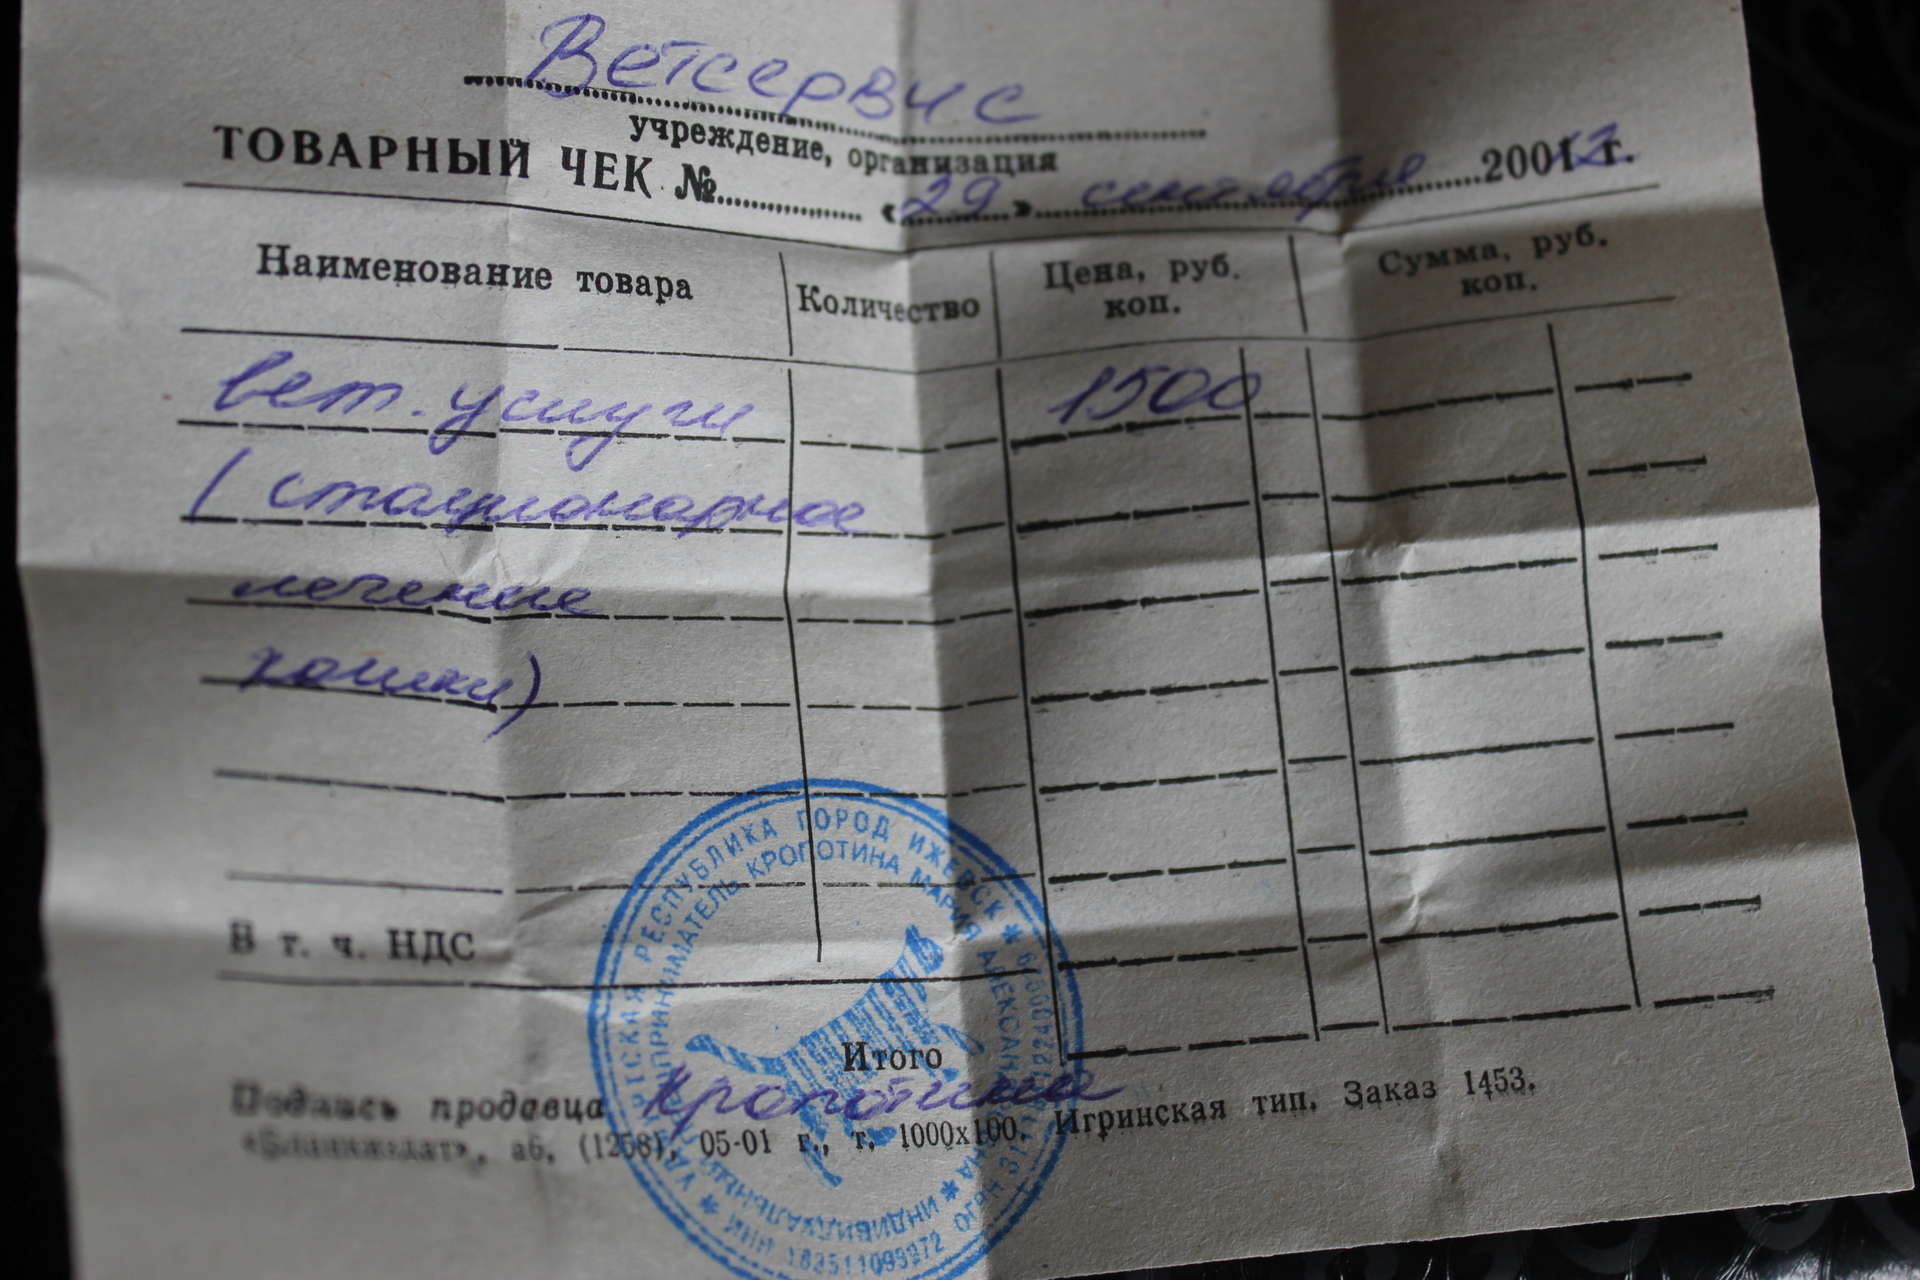 Ветсервис
учреждение, организация
ТОВАРНЫЙ ЧЕК №.......... «29» сентября 20012 г.
Наименование товара Количество Цена, руб. коп. Сумма, руб. коп.
вет. услуги 1500
(стационарное
лечение
кошки)
В т. ч. НДС
Итого
Подпись продавца Кропотина
«Бланкиздат», аб. (1258), 05-01 г., т. 1000х100. Игринская тип. Заказ 1453.
РЕСПУБЛИКА ГОРОД ИЖЕВСК *
КРОПОТИНА МАРИЯ
* ИНН